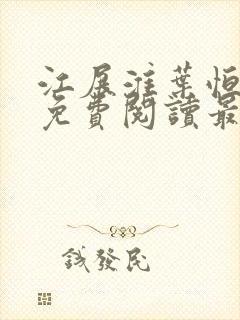 江展淮葉恒
免費閱讀最
錢發民